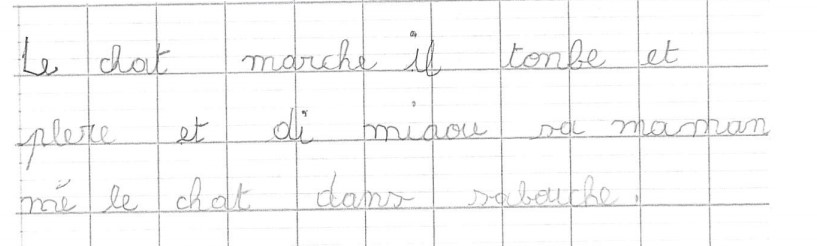 Le chat marche il tonbe et
plere et di miaou sa maman
mé le chat dans sabouche.